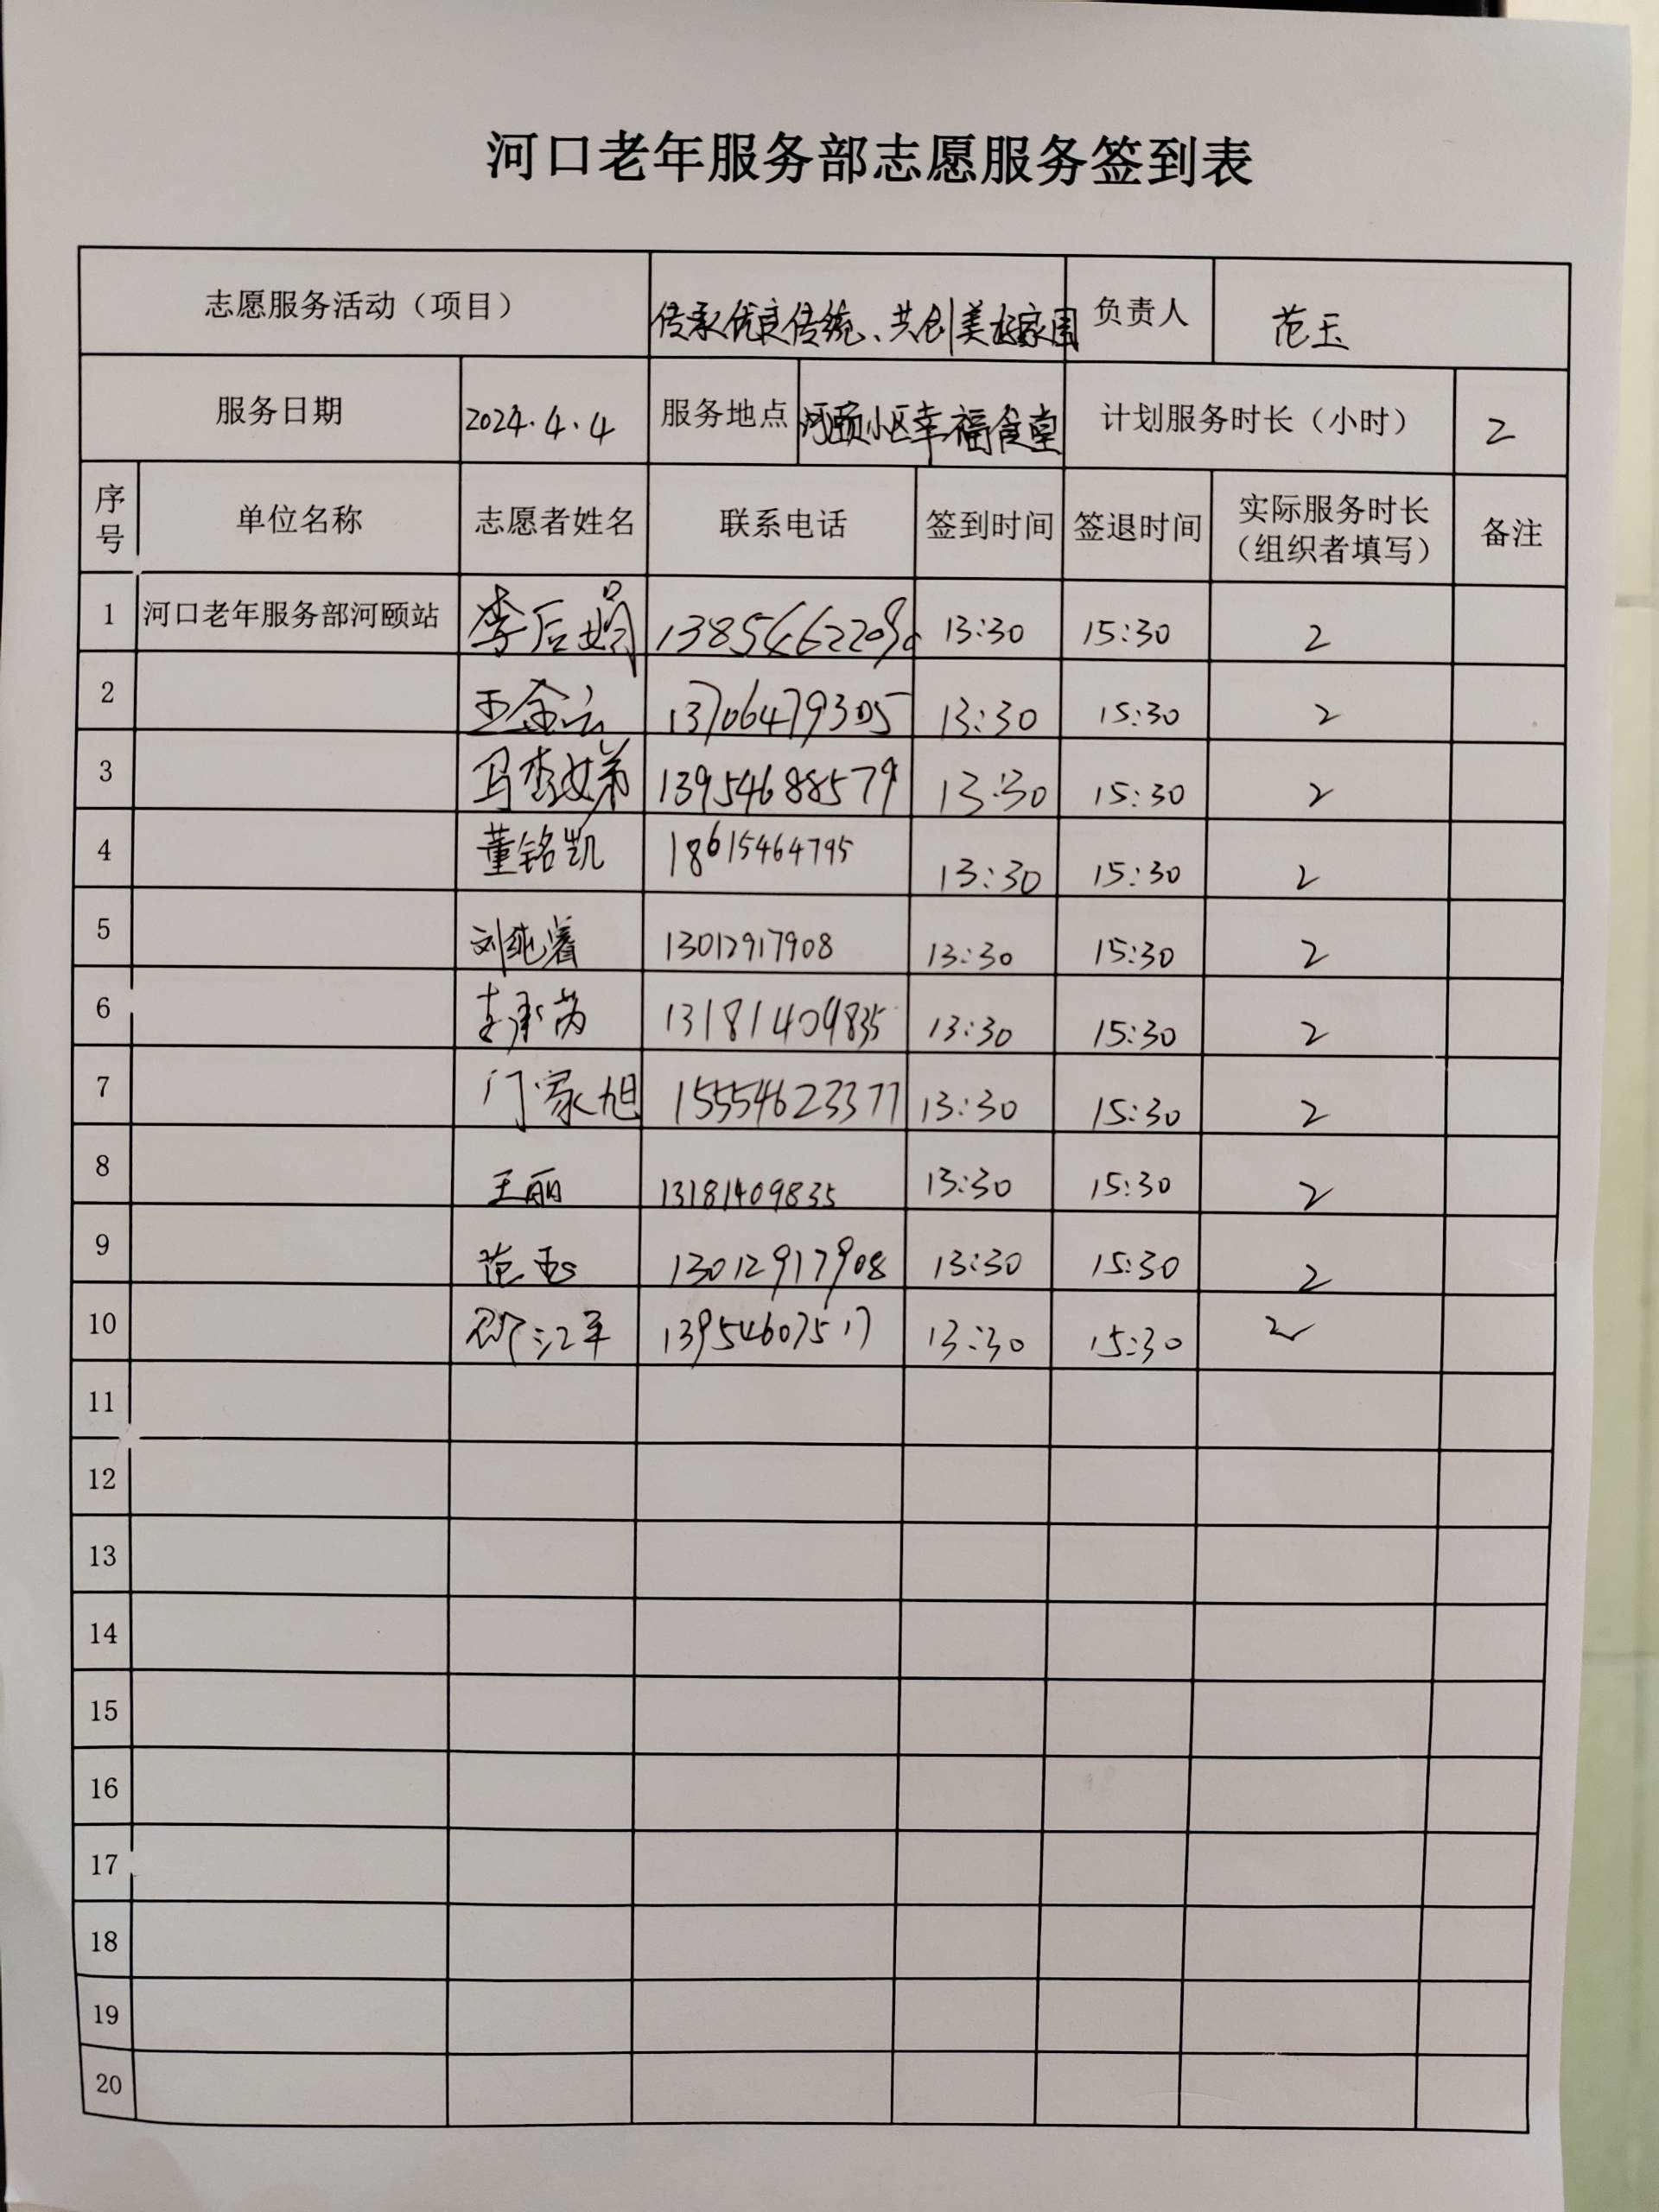 河口老年服务部志愿服务签到表
志愿服务活动（项目） 传承优良传统、共创美好家园 负责人 范玉
服务日期 2024.4.4 服务地点 河颐小区幸福食堂 计划服务时长（小时） 2
序号 单位名称 志愿者姓名 联系电话 签到时间 签退时间 实际服务时长（组织者填写） 备注
1 河口老年服务部河颐站 李后娟 13:30 15:30 2
2 王金云 13706479305 13:30 15:30 2
3 马秀娣 13954688579 13:30 15:30 2
4 董铭凯 18615464795 13:30 15:30 2
5 刘纯睿 13012917908 13:30 15:30 2
6 李承芮 13181409835 13:30 15:30 2
7 门家旭 15554623377 13:30 15:30 2
8 王丽 13181409835 13:30 15:30 2
9 范玉 13012917908 13:30 15:30 2
10 13954607517 13:30 15:30 2
11
12
13
14
15
16
17
18
19
20